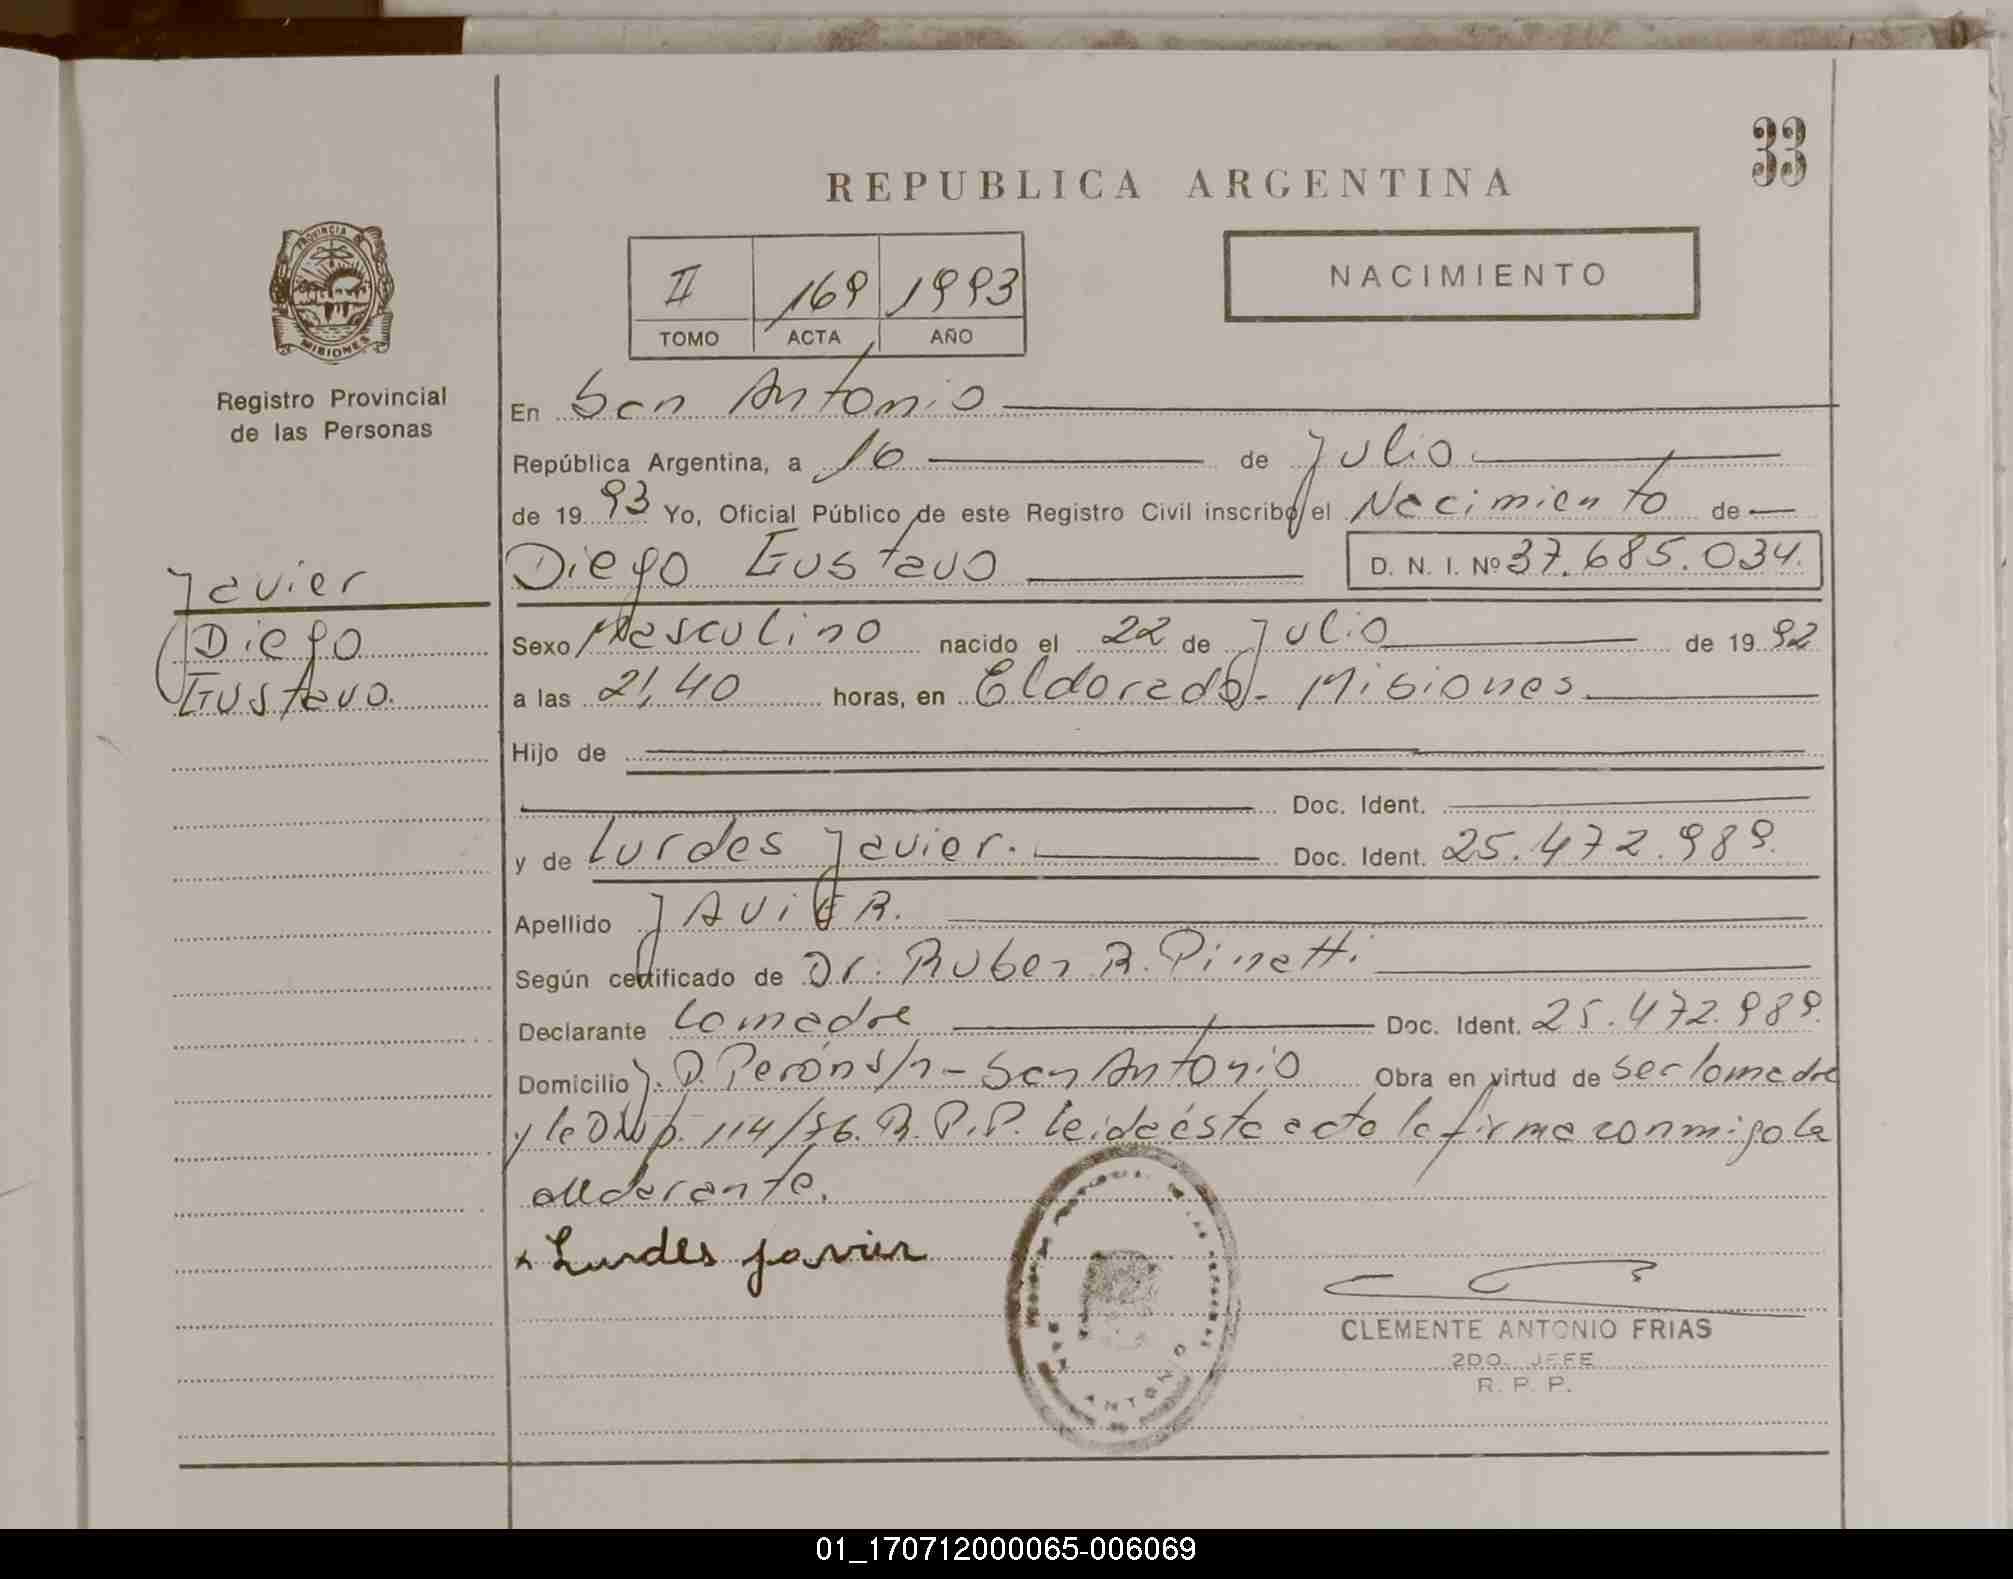 33
REPUBLICA ARGENTINA
II 169 1993
TOMO ACTA AÑO
NACIMIENTO
PROVINCIA DE
MISIONES
Registro Provincial
de las Personas
Javier
Diego
Gustavo.
En San Antonio
República Argentina, a 16 de Julio
de 1993 Yo, Oficial Público de este Registro Civil inscribo el Nacimiento de
Diego Gustavo D. N. I. Nº 37.685.034.
Sexo Masculino nacido el 22 de Julio de 1992
a las 21,40 horas, en Eldorado - Misiones
Hijo de
Doc. Ident.
y de Lurdes Javier. Doc. Ident. 25.472.989.
Apellido JAViER.
Según certificado de Dr. Ruben R. Pinetti
Declarante la madre Doc. Ident. 25.472.989.
Domicilio J. D. Perón s/n - San Antonio Obra en virtud de ser la madre
y la Disp. 114/86. R. P. P. leida ésta acta la firma conmigo la
declarante.
Lurdes Javier
ANTONIO
CLEMENTE ANTONIO FRIAS
2DO. JEFE
R. P. P.
01_170712000065-006069